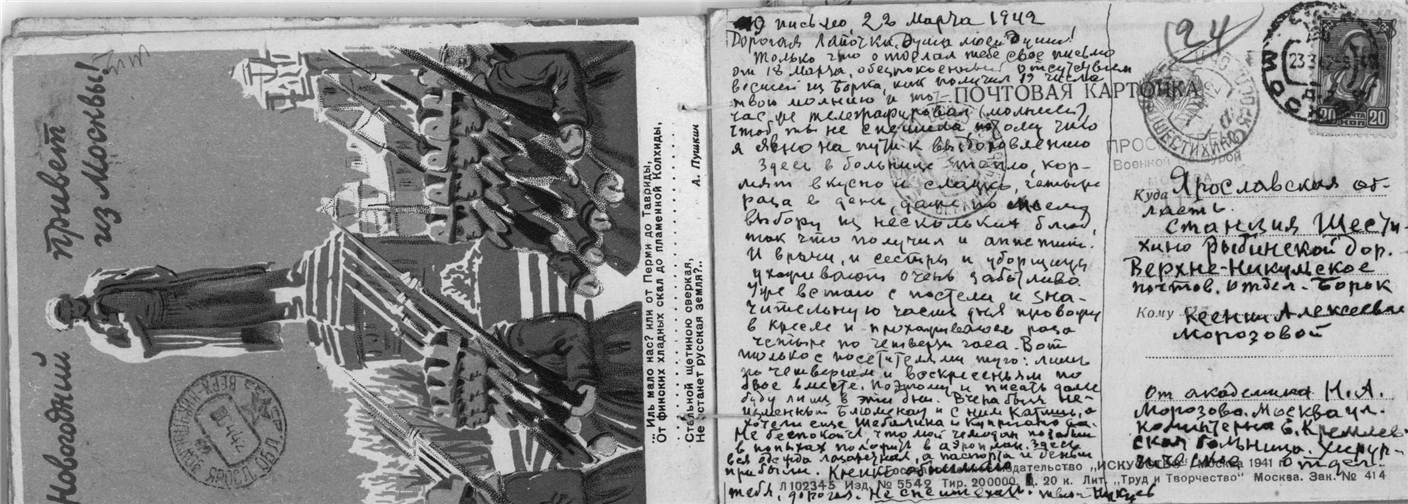 Новогодний привет
из Москвы!
"Иль мало нас? или от Перми до Тавриды,
От финских хладных скал до пламенной Колхиды,
Стальной щетиною сверкая,
Не встанет русская земля?..
А. Пушкин
письмо 22 марта 1942
Дорогая Лялочка, душа моей души!
Только что отослал тебе свое письмо
от 18 марта, обеспокоенный отсутствием
вестей из Борка, как получил 19 числа
твою молнию и
час же телеграфировал (молнией)
чтоб ты не спешила потому что
я явно на пути к выздоровлению
Здесь в больнице тепло, кор-
мят вкусно и сладко, четыре
раза в день, даже по моему
выбору из нескольких блюд,
так что получил и аппетит.
И врачи, и сестры и уборщицы
ухаживают очень заботливо.
Уже встаю с постели и зна-
чительную часть дня провожу
в кресле и прохаживаюсь раза
четыре по четверти часа. Вот
только с посетителями туго: лишь
по четвергам и воскресеньям по
двое вместе. Поэтому и писать далее
буду лишь в эти дни. Вчера был не-
изменный Блюмская и с ним
хотели еще
Не беспокойся, что мой чемодан
в попыхах
вся посуда лазаретная, а паспорта и деньги
прибыли. Крепко обнимаю
тебя, дорогая. Не спеши ехать. твой
ПОЧТОВАЯ КАРТОЧКА
24
МОС
23.3.42
20 20
КОП
ПРОС
Военной
Куда Ярославская об-
ласть.
станция Шести-
хино Рыбинской дор.
Верхне-Никульское
почтов. отдел. Борок
Кому Ксении Алексеевне
Морозовой
от академика Н.А.
Морозова. Москва ул.
Коминтерна 6. Кремлев-
ская больница. Хирур-
гическое отдел.
Государственное издательство „ИСКУССТВО" Москва 1941
Л102345 Изд. № 5542 Тир. 200000 Ц. 20 к. Лит. „Труд и Творчество" Москва. Зак. № 414